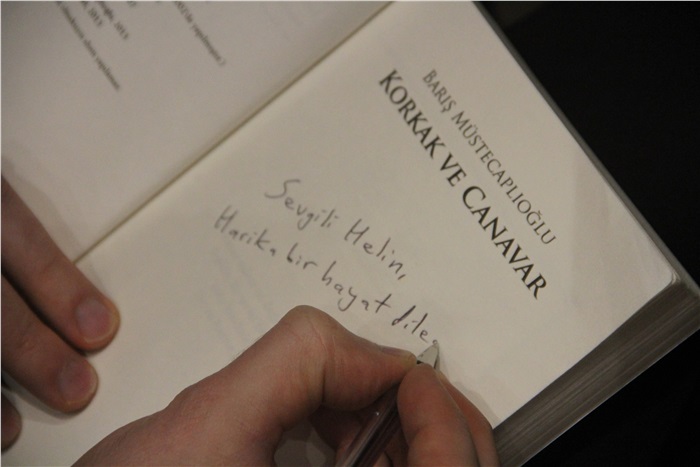 BARIŞ MÜSTECAPLIOĞLU
KORKAK VE CANAVAR
Sevgili Helin,
Harika bir hayat dile